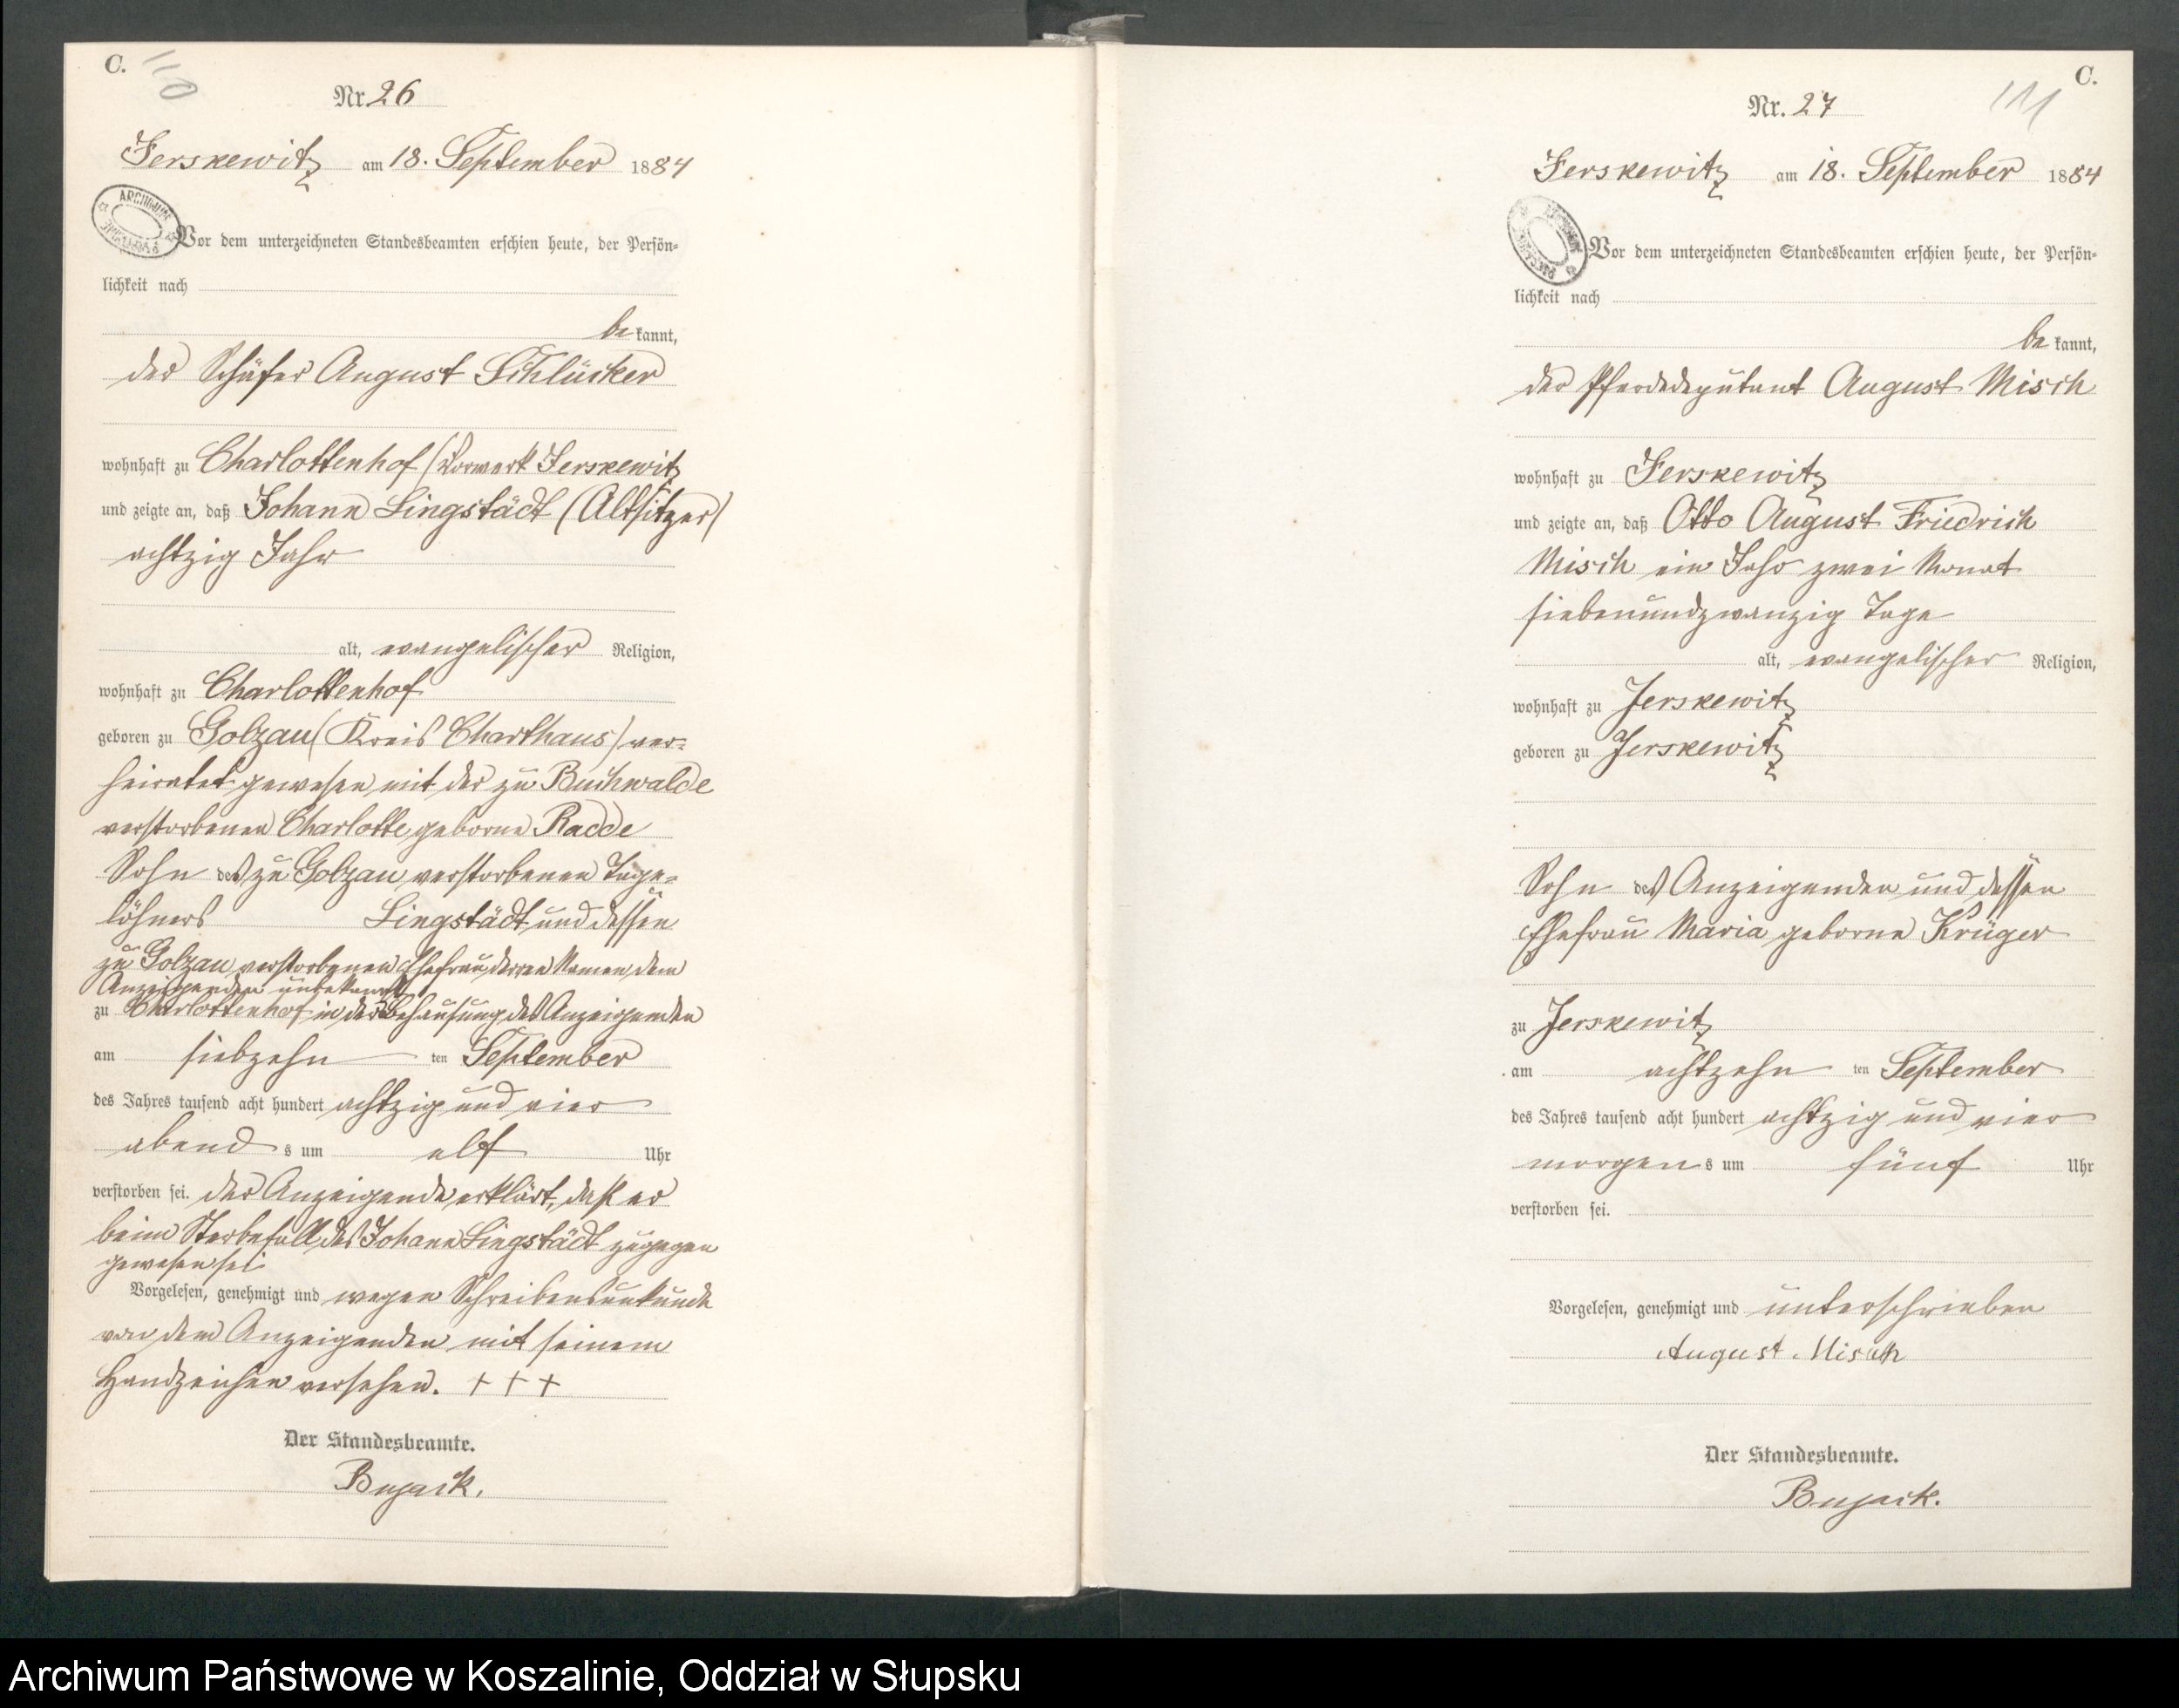 C.
110
Nr. 26
Jerskewitz am 18. September 1884
ARCHIWUM
Vor dem unterzeichneten Standesbeamten erschien heute, der Persön-
lichkeit nach
bekannt,
der Schäfer August Schlücker
wohnhaft zu Charlottenhof (Vorwerk Jerskewitz
und zeigte an, daß Johann Lingstädt (Altsitzer)
achtzig Jahr
alt, evangelischer Religion,
wohnhaft zu Charlottenhof
geboren zu Golzau (Kreis Charthaus) ver-
heiratet gewesen mit der zu Buchwalde
verstorbenen Charlotte geborne Radde
Sohn des zu Golzau verstorbenen Tage-
löhners Lingstädt und dessen
zu Golzau verstorbenen Ehefrau, deren Namen dem
Anzeigenden unbekannt
zu Charlottenhof in der Behausung des Anzeigenden
am siebzehn ten September
des Jahres tausend acht hundert achtzig und vier
abends um elf Uhr
verstorben sei. Der Anzeigende erklärt, daß er
beim Sterbefall des Johann Lingstädt zugegen
gewesen sei.
Vorgelesen, genehmigt und wegen Schreibensunkunde
von dem Anzeigenden mit seinem
Handzeichen versehen. + + +
Der Standesbeamte.
Bujack.
C.
111
Nr. 27
Jerskewitz am 18. September 1884
Vor dem unterzeichneten Standesbeamten erschien heute, der Persön-
lichkeit nach
bekannt,
der Pferdedeputant August Misch
wohnhaft zu Jerskewitz
und zeigte an, daß Otto August Friedrich
Misch ein Jahr zwei Monat
siebenundzwanzig Tage
alt, evangelischer Religion,
wohnhaft zu Jerskewitz
geboren zu Jerskewitz
Sohn des Anzeigenden und dessen
Ehefrau Maria geborne Krüger
zu Jerskewitz
am achtzehn ten September
des Jahres tausend acht hundert achtzig und vier
morgens um fünf Uhr
verstorben sei.
Vorgelesen, genehmigt und unterschrieben
August Misch
Der Standesbeamte.
Bujack.
Archiwum Państwowe w Koszalinie, Oddział w Słupsku